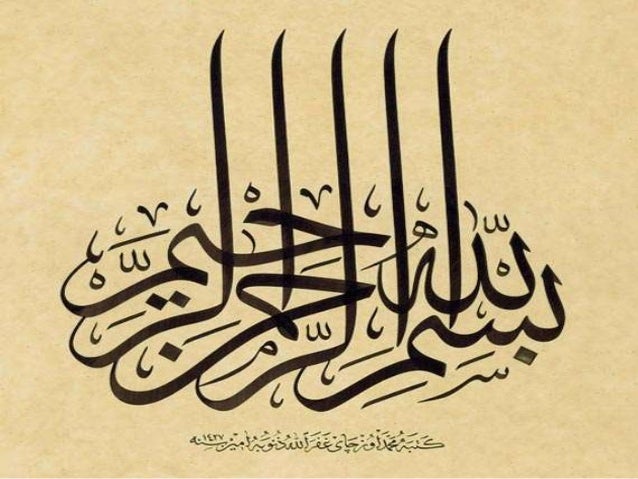 بسم الله الرحمن الرحيم
كتبه محمد اوزچاى غفر الله ذنوبه امين سنه ١٤٢٧